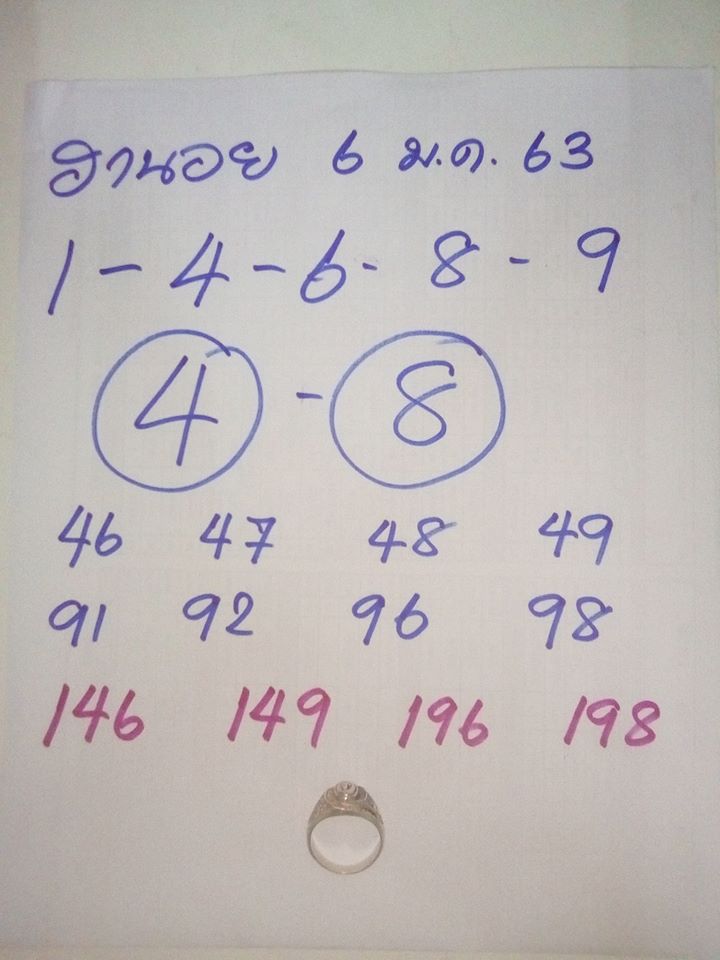 ฮานอย 6 ม.ค. 63
1 - 4 - 6 - 8 - 9
4 - 8
46 47 48 49
91 92 96 98
146 149 196 198